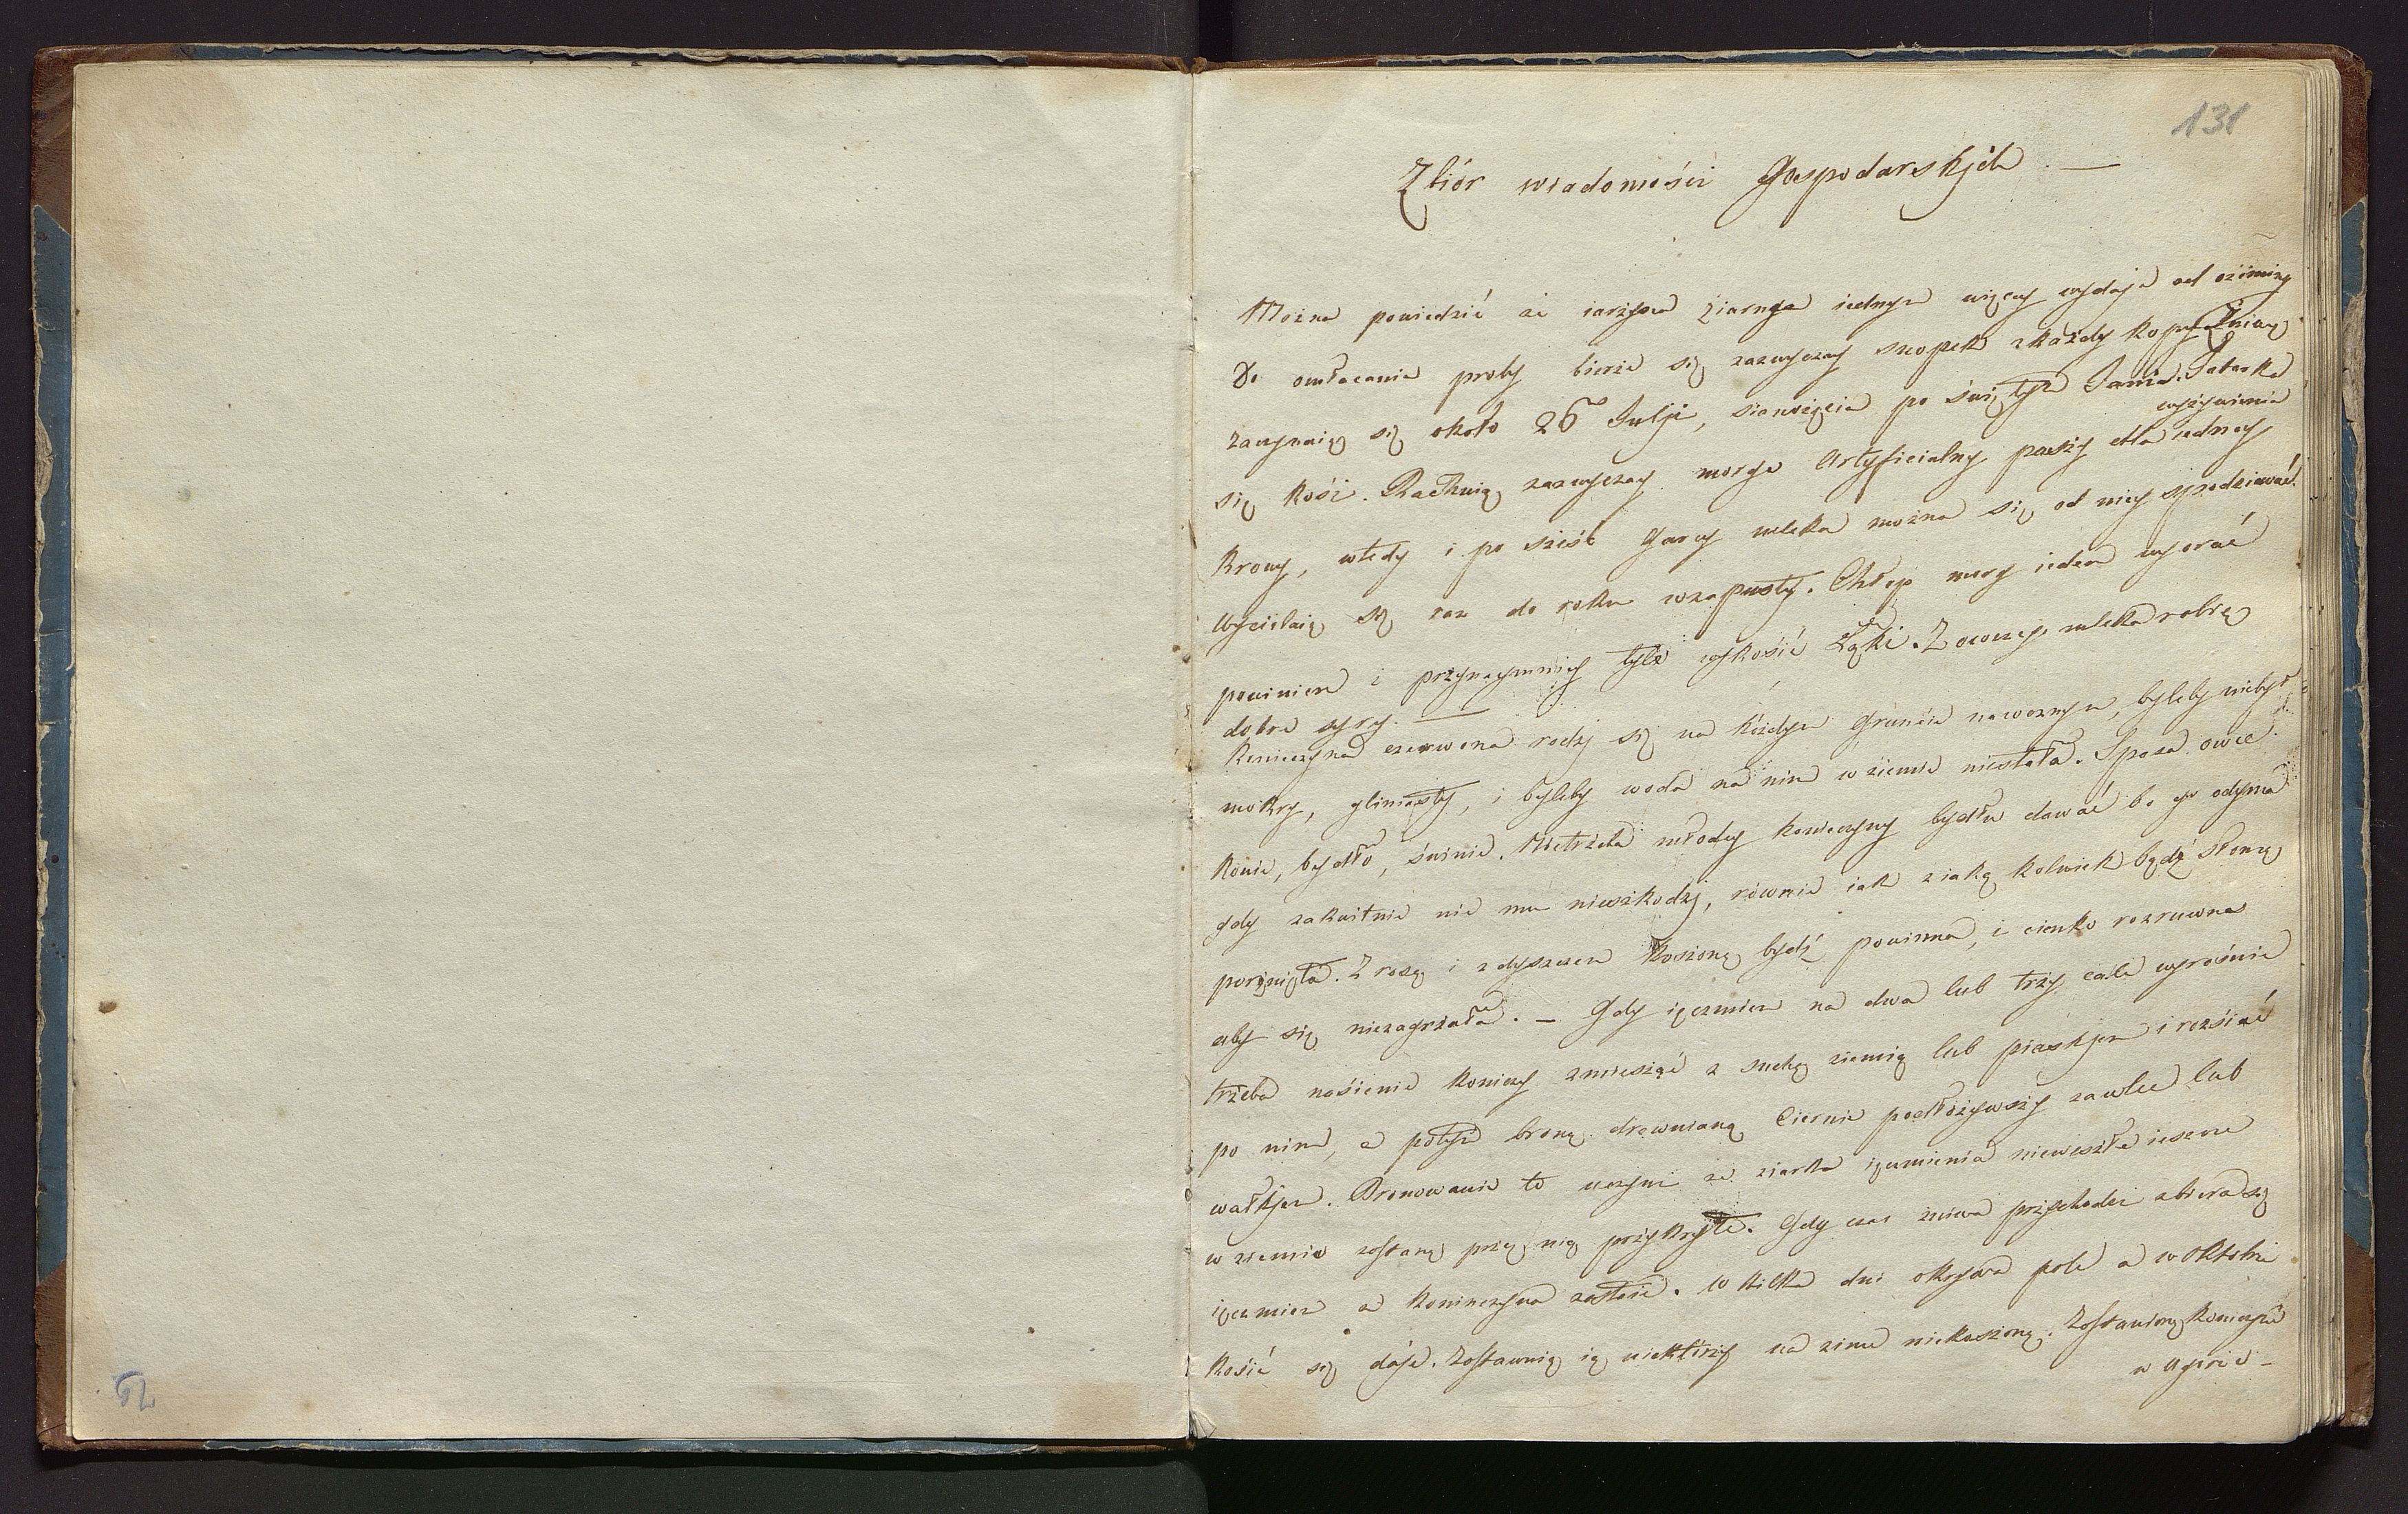 131
Zbiór wiadomości Gospodarskjch —
Można powiedzić że iarzyna ziarnem iednym więcey wydaje od oziminy
Do omłacania proby bierze się zazwyczay snopek zkażdy kopy. Żniwa
zaczynaią się około 26º Julji, sianożęcia po świętym Janie. Tatarka
się kosi. Rachuią zazwyczay morga Artyficialny paszy dla wyżywienia iedney
Krowy, wtedy i po sześć Garcy mleka można się od niey spodziewać.
Wycielaią się raz do roku wzapusty. Chłop morg ieden wyorać
powinien i przynaymniey tyle wykosić Łąki. Z owczego mleka robią
dobre syry. —
Koniczyna czerwona rodzj się na każdym Gruncie nawoznym, byleby niebył
mokry, gliniasty, i byleby woda na nim w ziemie niestała. Spasa owce
Konie, bydło, świnie. Nietrzeba młodey koniczyny bydłu dawać bo go odyma
gdy zakwitnie nic mu nieszkodzj, równie iak z iaką kolwiek bądź słomą
porżnięta. Z rosą i zdyszczem Koszoną bydź powinna, i cienko rozruwna
aby się niezagrzała. — Gdy ięczmien na dwa lub trzy cale wyrośnie
trzeba nasienie koniczy zmieszać z suchą ziemią lub piaskjem i rozsiać
po nim, a potym broną drewnianą Ciernie podłożywszy zawlec lub
wałkjem. Bronowanie to uczyni że ziarka ięczmienia nieweszłe ieszcze
w ziemie zostaną przez nią przykryte. Gdy czas żniwa przychodzi zbiera się
ięczmien a koniczyna zostaie. W kilka dni okrywa pole a w Oktobrze
Kosić się daje. Zostawuią ią niektórzy na zime niekoszoną. Zostawioną koniczyne
w Aprile —
52